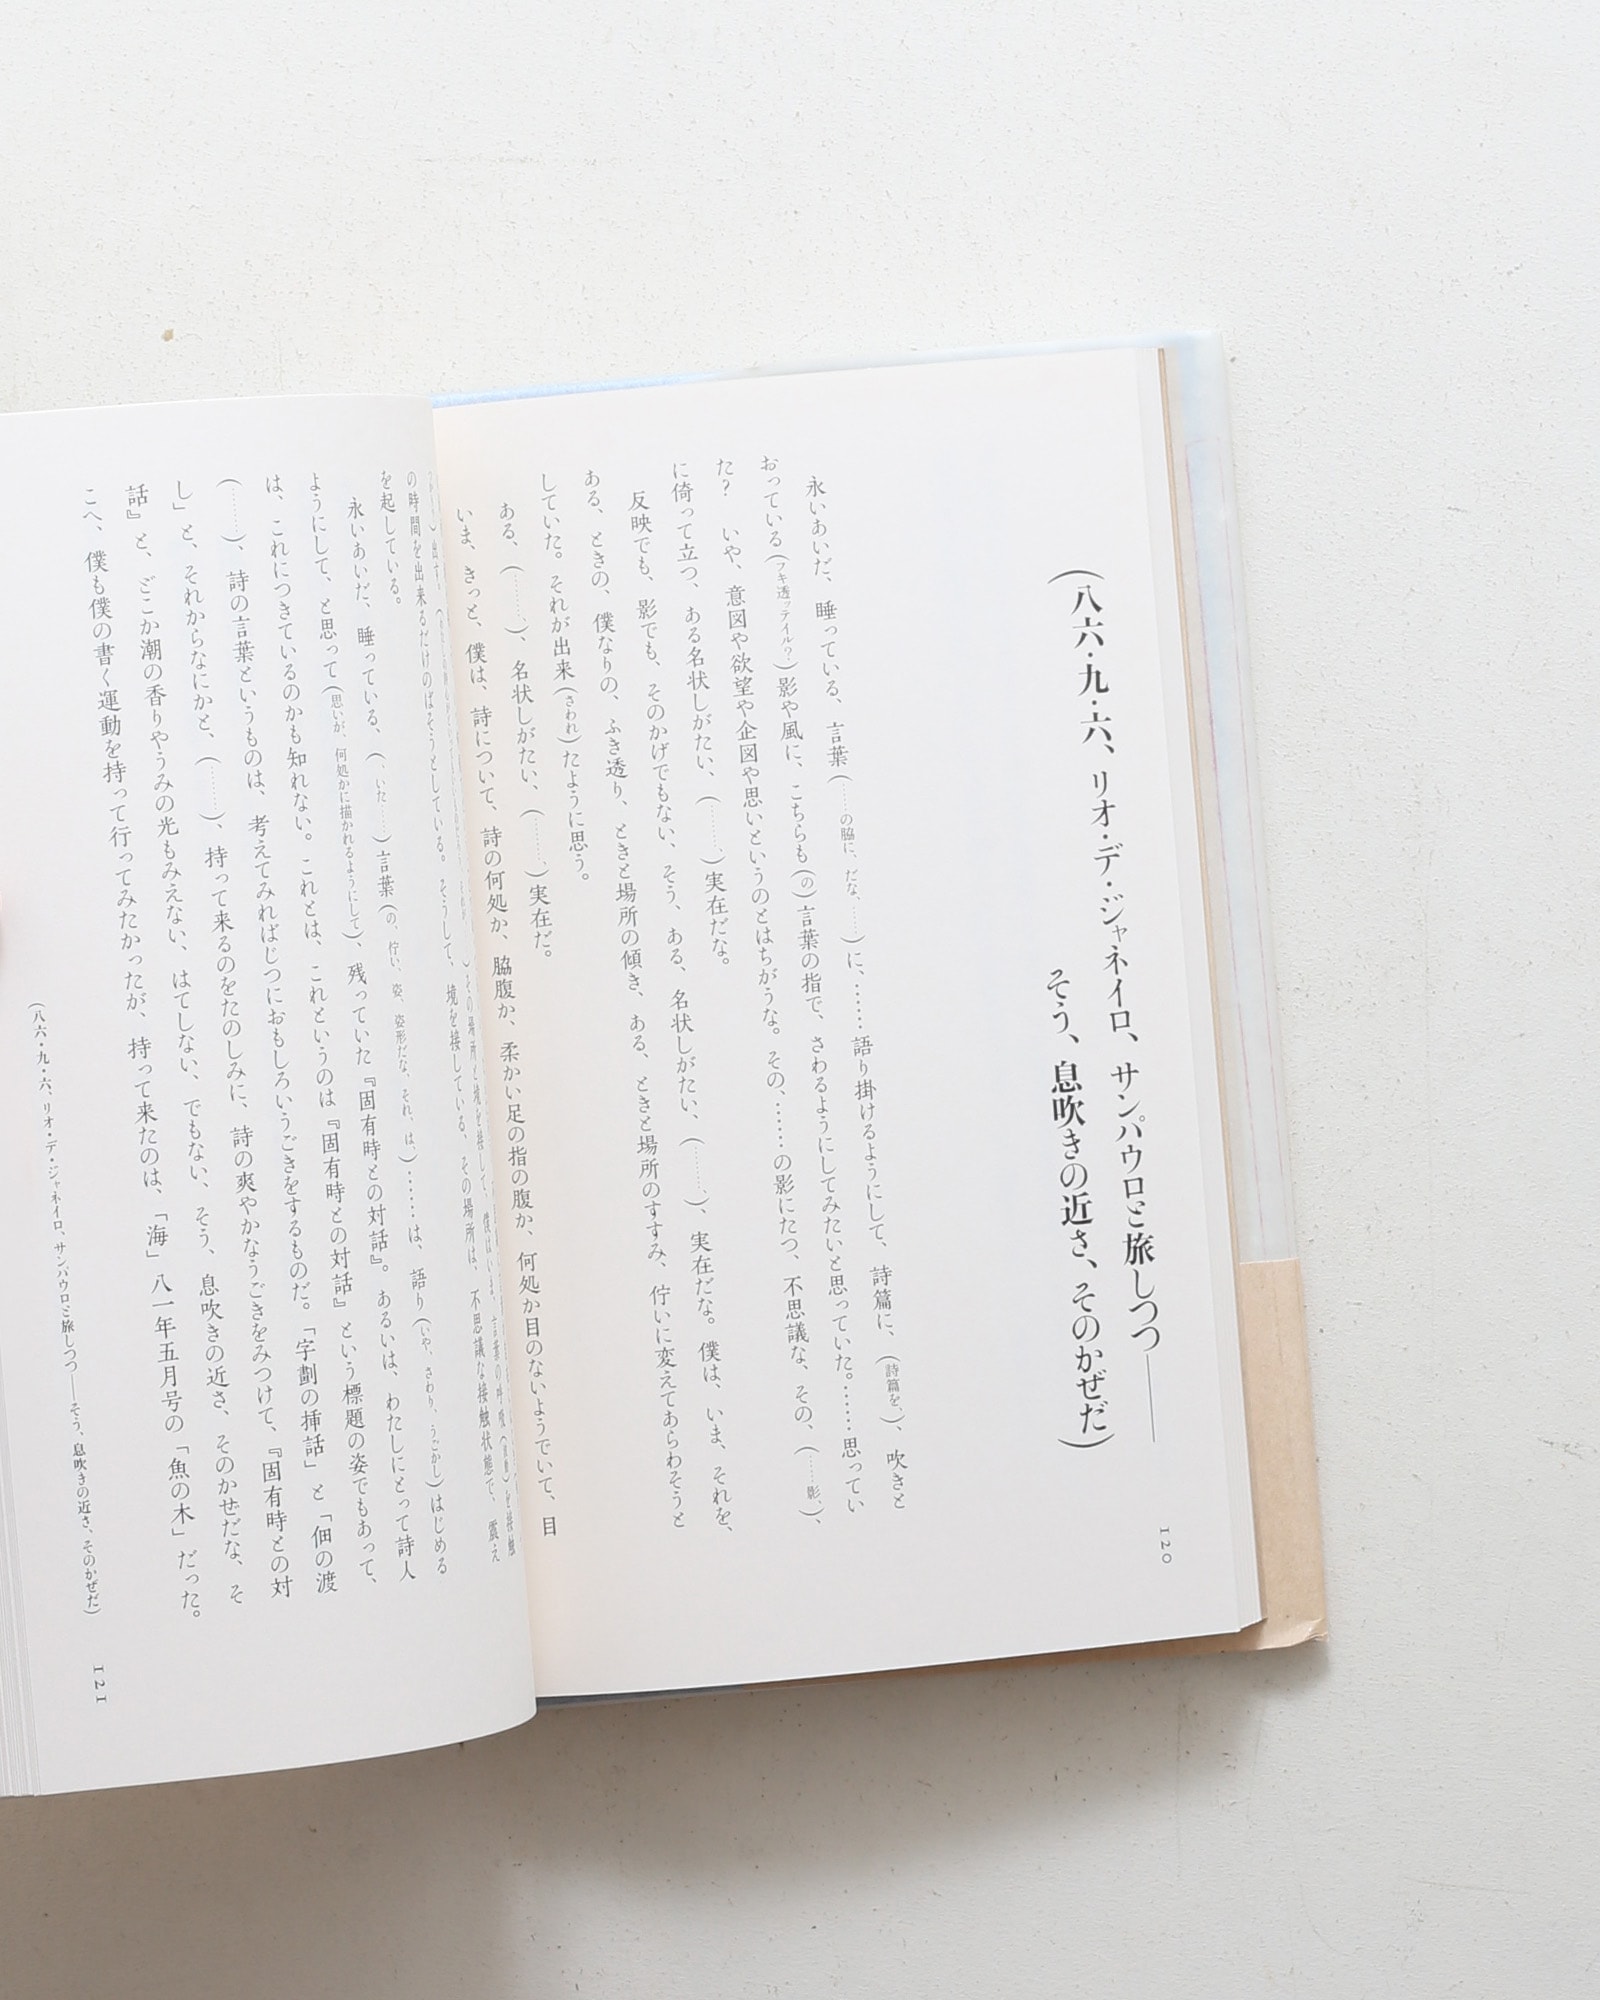 （八六・九・六、リオ・デ・ジャネイロ、サンパウロと旅しつつ――
そう、息吹きの近さ、そのかぜだ）
永いあいだ、睡っている、言葉（……の脇に、だな、……）に、……語り掛けるようにして、詩篇に、（詩篇を、）、吹きと
おっている（フキ透ッテイル？）影や風に、こちらも（の）言葉の指で、さわるようにしてみたいと思っていた。……思ってい
た？　いや、意図や欲望や企図や思いというのとはちがうな。その、……の影にたつ、不思議な、その、（……影、）、
に倚って立つ、ある名状しがたい、（………、）実在だな。
反映でも、影でも、そのかげでもない、そう、ある、名状しがたい、（………、）、実在だな。僕は、いま、それを、
ある、ときの、僕なりの、ふき透り、ときと場所の傾き、ある、ときと場所のすすみ、佇いに変えてあらわそうと
していた。それが出来（さわれ）たように思う。
ある、（………、）、名状しがたい、（………、）実在だ。
いま、きっと、僕は、詩について、詩の何処か、脇腹か、柔かい足の指の腹か、何処か目のないようでいて、目
120
の時間を出来るだけのばそうとしている。そうして、境を接している、その場所は、不思議な接触状態で、震え
を起している。
永いあいだ、睡っている、（、いた……）言葉（の、佇い、姿、姿形だな、それ、は、）……は、語り（いや、さわり、うごかし）はじめる
ようにして、と思って（思いが、何処かに描かれるようにして）、残っていた『固有時との対話』。あるいは、わたしにとって詩人
は、これにつきているのかも知れない。これとは、これというのは『固有時との対話』という標題の姿でもあって、
（………）、詩の言葉というものは、考えてみればじつにおもしろいうごきをするものだ。「字劃の挿話」と「佃の渡
し」と、それからなにかと、（………）、持って来るのをたのしみに、詩の爽やかなうごきをみつけて、『固有時との対
話』と、どこか潮の香りやうみの光もみえない、はてしない、でもない、そう、息吹きの近さ、そのかぜだな、そ
こへ、僕も僕の書く運動を持って行ってみたかったが、持って来たのは、「海」八一年五月号の「魚の木」だった。
（八六・九・六、リオ・デ・ジャネイロ、サンパウロと旅しつつ――そう、息吹きの近さ、そのかぜだ）
121